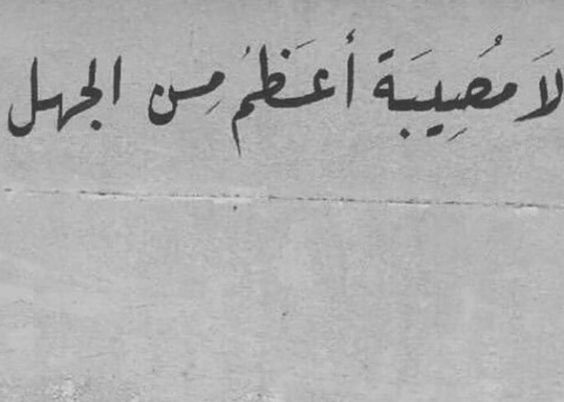 لاَ مُصِيبَة أعَظمُ مِن الجهل